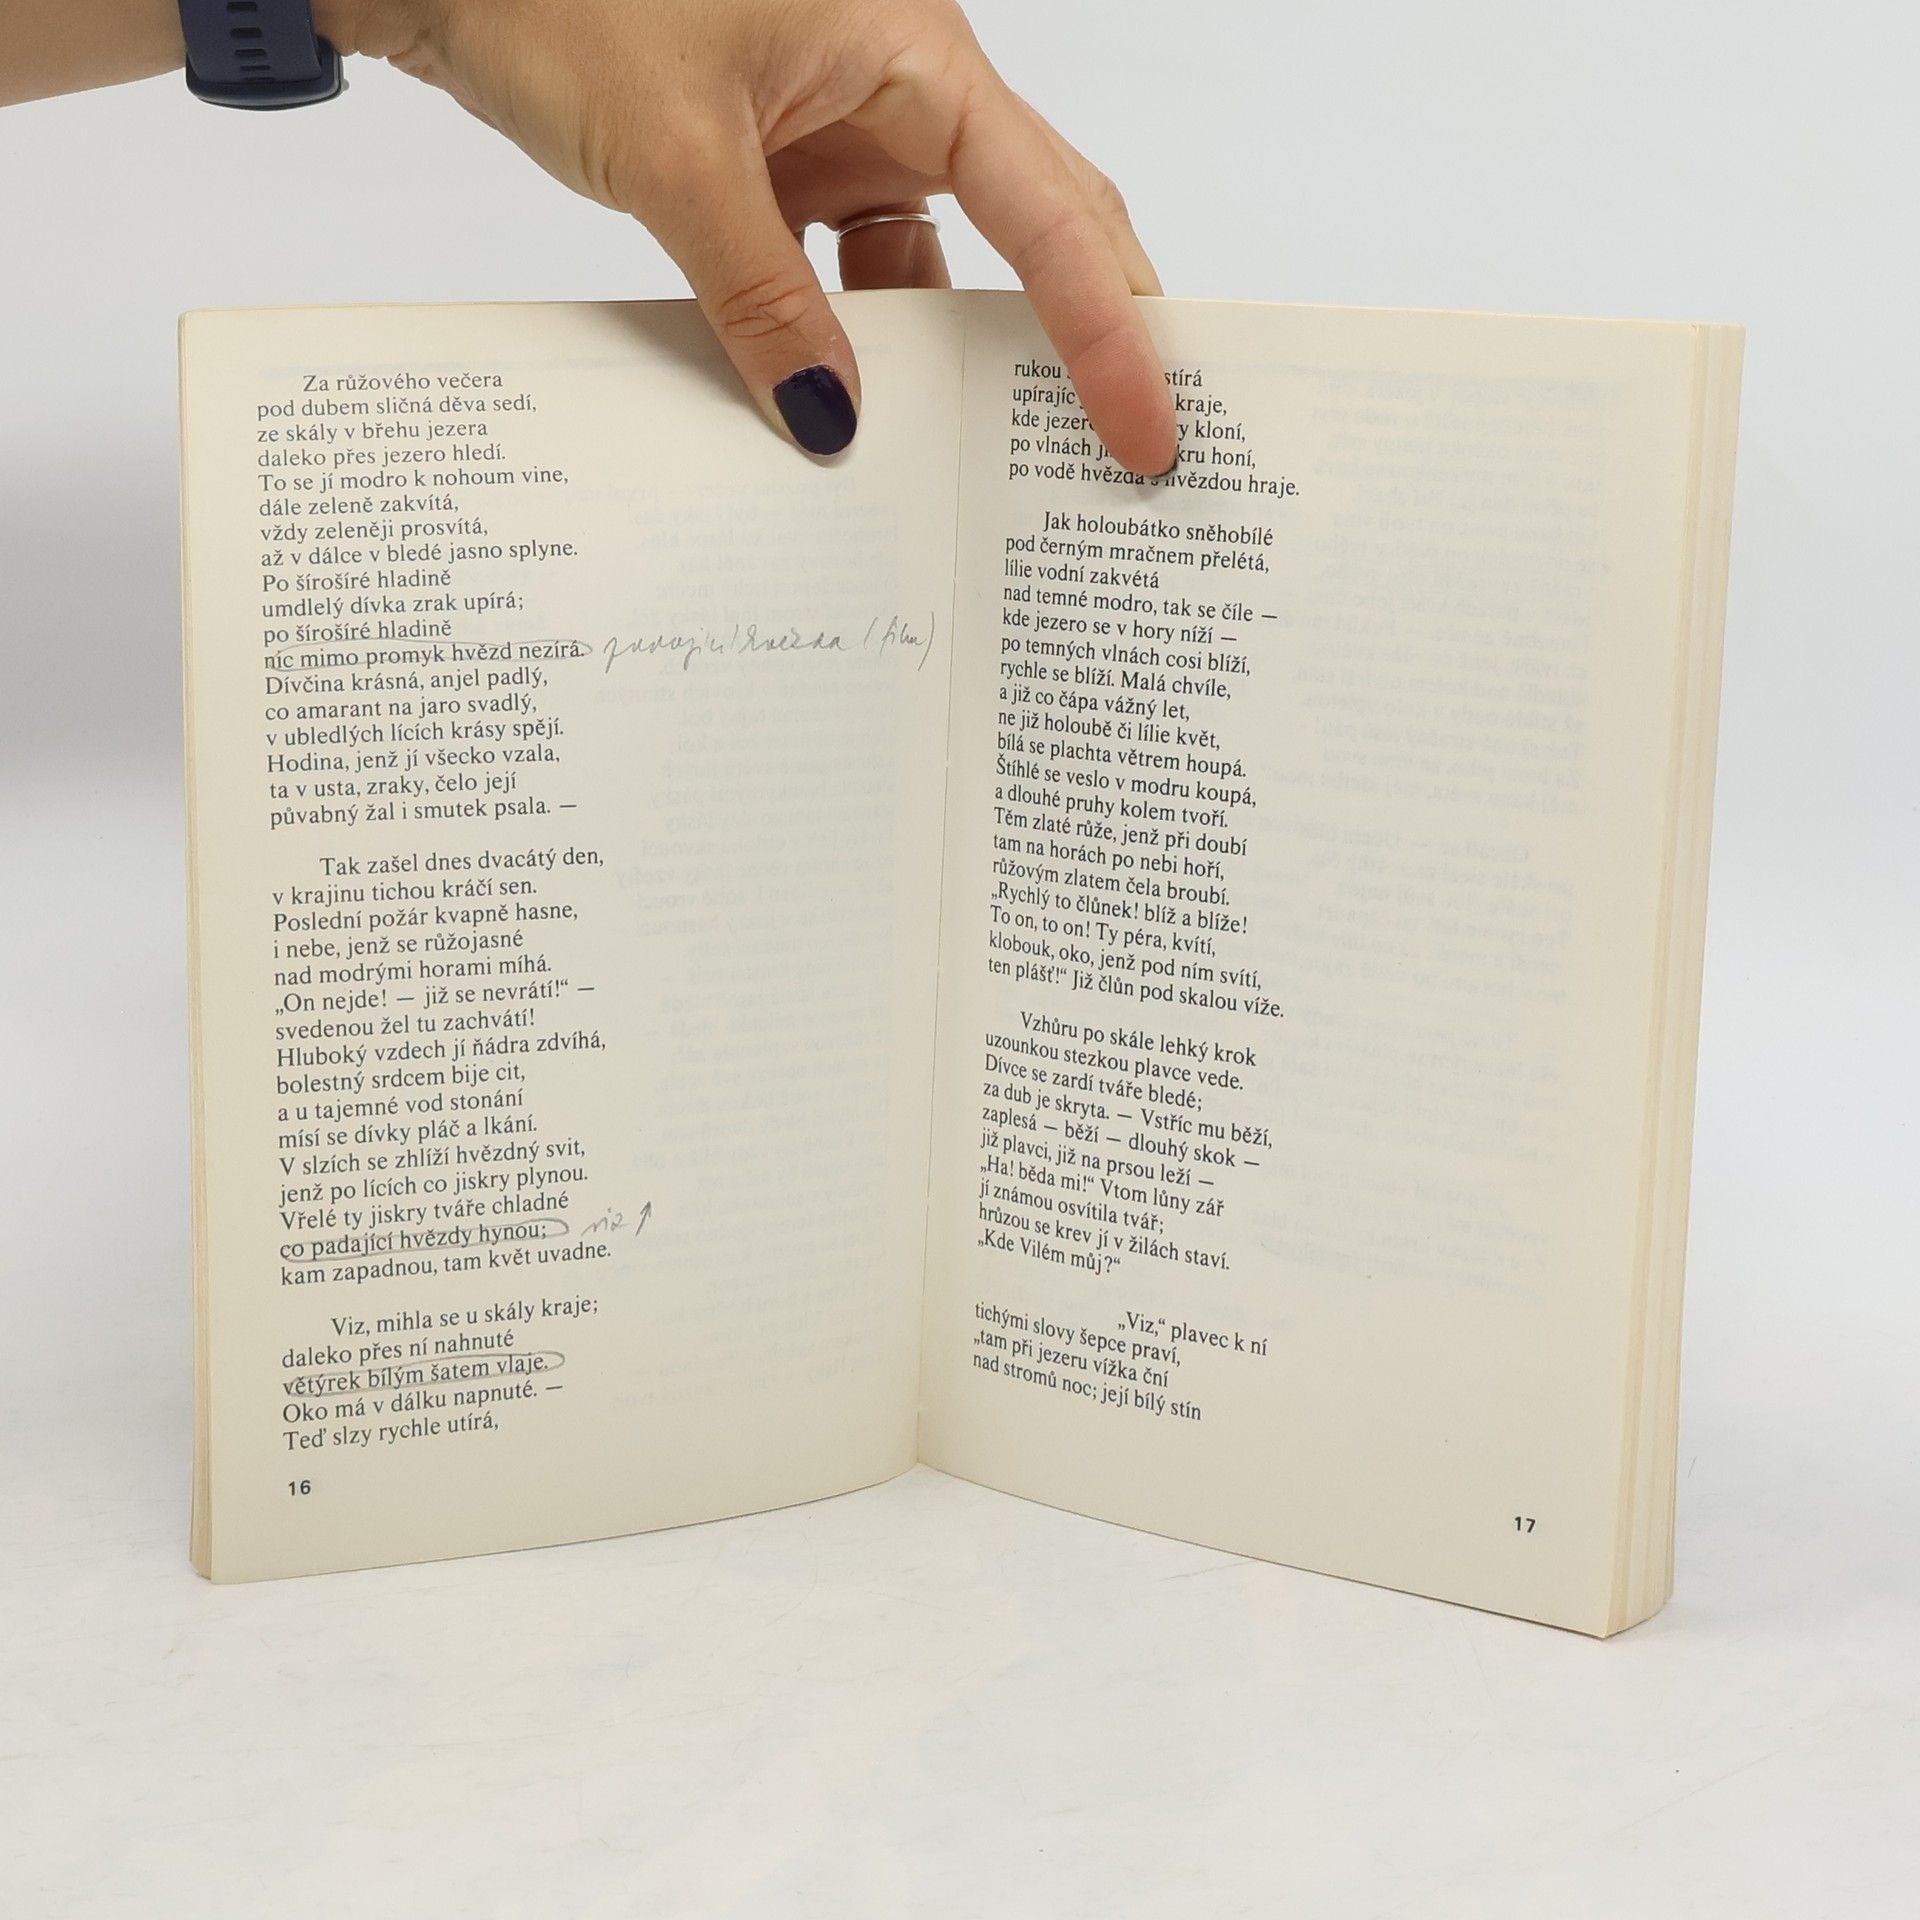 Za růžového večera
pod dubem sličná děva sedí,
ze skály v břehu jezera
daleko přes jezero hledí.
To se jí modro k nohoum vine,
dále zeleně zakvítá,
vždy zeleněji prosvítá,
až v dálce v bledé jasno splyne.
Po šírošíré hladině
umdlelý dívka zrak upírá;
po šírošíré hladině
nic mimo promyk hvězd nezírá. hvězda (film)
Dívčina krásná, anjel padlý,
co amarant na jaro svadlý,
v ubledlých lících krásy spějí.
Hodina, jenž jí všecko vzala,
ta v usta, zraky, čelo její
půvabný žal i smutek psala. —
Tak zašel dnes dvacátý den,
v krajinu tichou kráčí sen.
Poslední požár kvapně hasne,
i nebe, jenž se růžojasné
nad modrými horami míhá.
„On nejde! — již se nevrátí!“ —
svedenou žel tu zachvátí!
Hluboký vzdech jí ňádra zdvíhá,
bolestný srdcem bije cit,
a u tajemné vod stonání
mísí se dívky pláč a lkání.
V slzích se zhlíží hvězdný svit,
jenž po lících co jiskry plynou.
Vřelé ty jiskry tváře chladné
co padající hvězdy hynou; viz ↑
kam zapadnou, tam květ uvadne.
Viz, mihla se u skály kraje;
daleko přes ní nahnuté
větýrek bílým šatem vlaje.
Oko má v dálku napnuté. —
Teď slzy rychle utírá,
16
rukou stírá
upírajíc kraje,
kde jezero kloní,
po vlnách honí,
po vodě hvězda s hvězdou hraje.
Jak holoubátko sněhobílé
pod černým mračnem přelétá,
lílie vodní zakvétá
nad temné modro, tak se číle —
kde jezero se v hory níží —
po temných vlnách cosi blíží,
rychle se blíží. Malá chvíle,
a již co čápa vážný let,
ne již holoubě či lílie květ,
bílá se plachta větrem houpá.
Štíhlé se veslo v modru koupá,
a dlouhé pruhy kolem tvoří.
Těm zlaté růže, jenž při doubí
tam na horách po nebi hoří,
růžovým zlatem čela broubí.
„Rychlý to člůnek! blíž a blíže!
To on, to on! Ty péra, kvítí,
klobouk, oko, jenž pod ním svítí,
ten plášť!“ Již člůn pod skalou víže.
Vzhůru po skále lehký krok
uzounkou stezkou plavce vede.
Dívce se zardí tváře bledé;
za dub je skryta. — Vstříc mu běží,
zaplesá — běží — dlouhý skok —
již plavci, již na prsou leží —
„Ha! běda mi!“ Vtom lůny zář
jí známou osvítila tvář;
hrůzou se krev jí v žilách staví.
„Kde Vilém můj?“
„Viz,“ plavec k ní
tichými slovy šepce praví,
„tam při jezeru vížka ční
nad stromů noc; její bílý stín
17